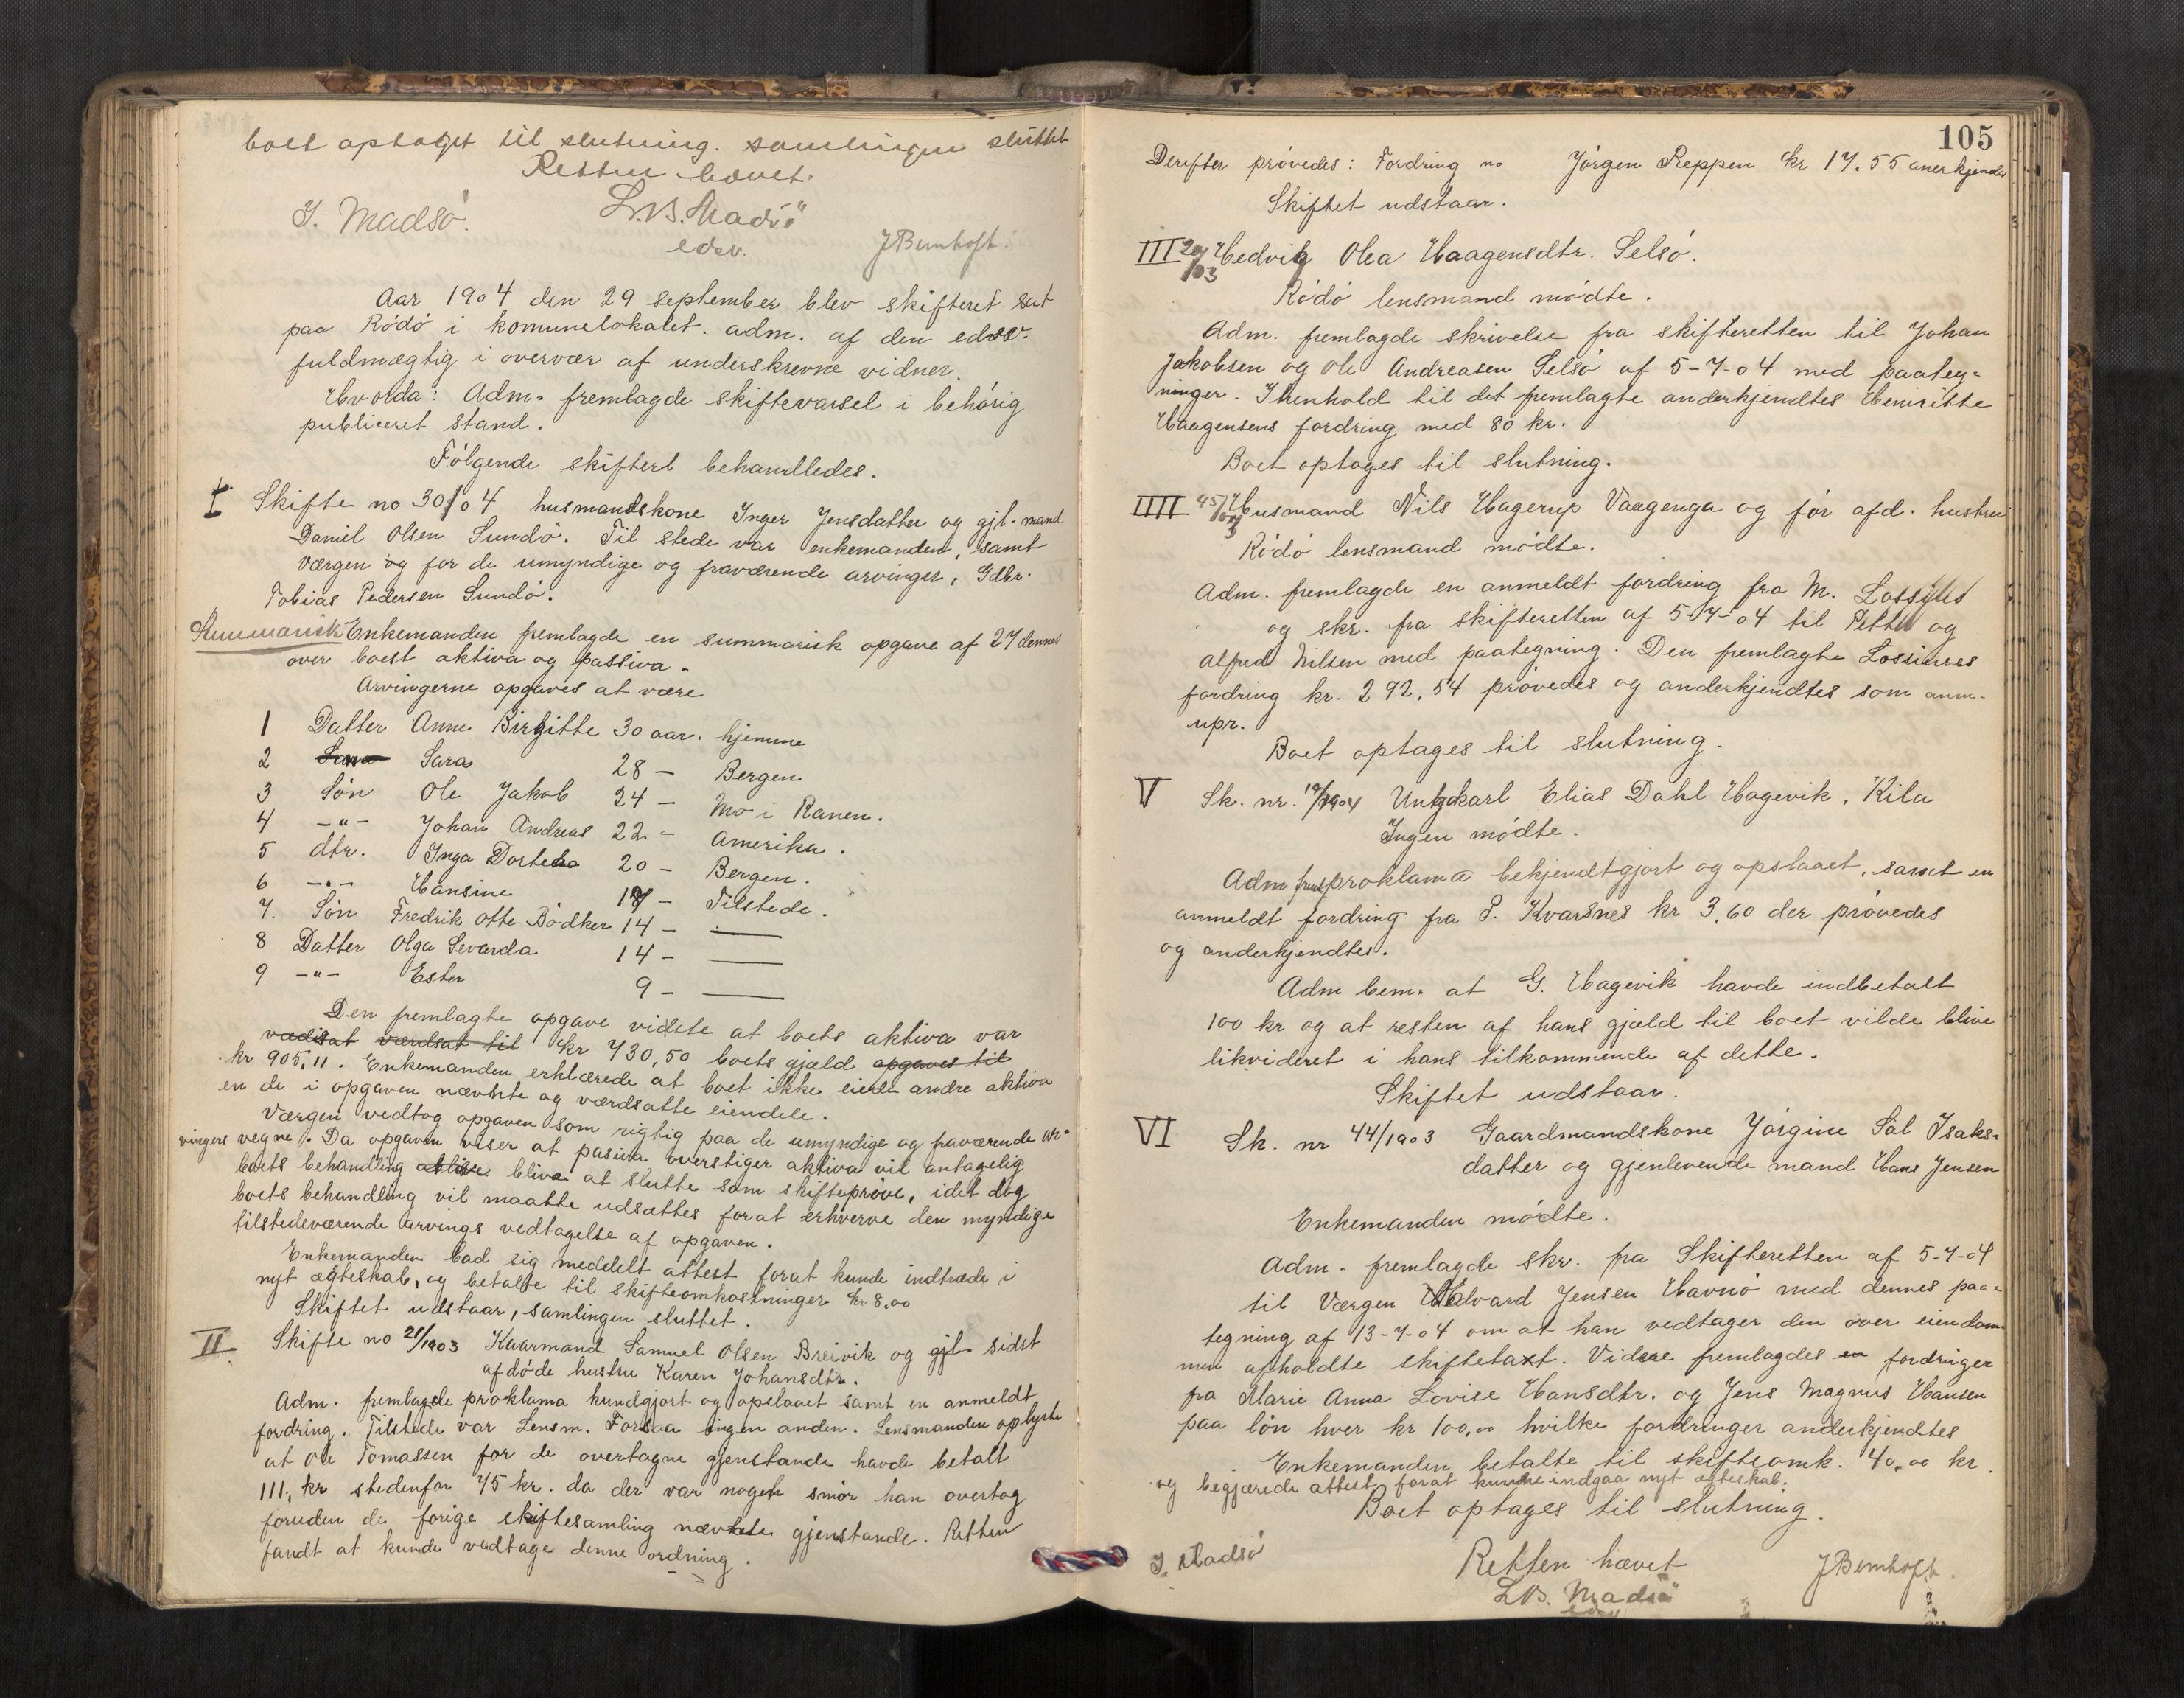 boet optaget til slutning. samlingen sluttet
Retten hævet.
I. Madsö.
L.B. Madsö
edsv.
J Bernhoft.
Aar 1904 den 29 september blev skifteret sat
paa Rödö i komunelokalet. adm. af den edsv.
fuldmægtig i overvær af underskrevne vidner.
Hvorda: Adm. fremlagde skiftevarsel i behörig
publiceret stand.
Fölgende skifterl behandledes.
I Skifte no 30/04 husmandskone Inger Jensdatter og gjl. mand
Daniel Olsen Sundö. Til stede var enkemanden, samt
værgen og for de umyndige og fraværende arvinger, Gdbr.
Tobias Pedersen Sundö.
Summarisk Enkemanden fremlagde en summarisk opgave af 27 dennes
over boest aktiva og passiva.
Arvingerne opgaves at være
1 Datter Anne Birgitte 30 aar. hjemme
2 Sara 28 — Bergen
3 Sön Ole Jakob 24 — Mo i Ranen.
4 —"— Johan Andreas 22 — Amerika.
5 dtr. Inga Dortea 20 — Bergen.
6 —"— Hansine 17 — Tilstede.
7. Sön Fredrik Otte Bödker 14 — —
8 Datter Olga Sevarda 14 — —
9 —"— Ester 9 — —
Den fremlagte opgave vidste at boets aktiva var
vædisat værdsat til kr 730,50 boets gjæld opgaves til
kr 905,11. Enkemanden erklærede at boet ikke eiede andre aktiva
en de i opgaven nævnte og værdsatte eiendele.
Værgen vedtog opgaven som rigtig paa de umyndige og fraværende ar-
vingers vegne. Da opgaven viser at pasiva overstiger aktiva vil antagelig
boets behandling blive at slutte som skiftepröve, idet dog
boets behandling vil maatte udsættes forat erhverve den myndige
tilstedeværende arvings vedtagelse af opgaven.
Enkemanden bad sig meddelt attest forat kunde indtræde i
nyt ægteskab, og betalte til skifteomkostninger kr 8,00
Skiftet udstaar, samlingen sluttet.
II Skifte no 21/1903 Kaarmand Samuel Olsen Breivik og gjl. sidst
afdöde hustru Karen Johansdtr.
Adm. fremlagde proklama kundgjort og opslaaet samt en anmeldt
fordring. Tilstede var Lensm. Forsaa ingen anden. Lensmanden oplyste
at Ole Tomassen for de overtagne gjenstande havde betalt
111, kr stedenfor 75 kr. da der var noget smör han overtog
foruden de forige skiftesamling nævnte gjenstande. Retten
fandt at kunde vedtage denne ordning.
105
Derefter prövedes: Fordring no Jörgen Reppen kr 17.55 anerkjendes
Skiftet udstaar.
III 20/03 Hedvig Olea Haagensdtr. Selsö.
Rödö lensmand mödte.
Adm. fremlagde skrivelse fra skifteretten til Johan
Jakobsen og Ole Andreasen Selsö af 5-7-04 med paateg-
ninger. I henhold til det fremlagte anderkjendtes Henriette
Haagensens fordring med 80 kr.
Boet optages til slutning.
IIII 45/03 Husmand Nils Hagerup Vaagenga og för afd. hustru
Rödö lensmand mödte.
Adm. fremlagde en anmeldt fordring fra M. Lossius
og skr. fra skifteretten af 5-7-04 til Petter og
Alfred Nilsen med paategning. Den fremlagte Lossiuses
fordring kr. 292,54 prövedes og anderkjendtes som anm-
upr.
Boet optages til slutning.
V Sk. nr. 19/1904 Ungkarl Elias Dahl Hagevik, Kila
Ingen mödte.
Adm freml. proklama bekjendtgjort og opslaaet, samt en
anmeldt fordring fra P. Kvarsnes kr 3,60 der prövedes
og anderkjendtes.
Adm bem. at G. Hagevik havde indbetalt
100 kr og at resten af hans gjæld til boet vilde blive
likvideret i hans tilkommende af dette.
Skiftet udstaar.
VI Sk. nr 44/1903 Gaardmandskone Jörgine Sal Isaks-
datter og gjenlevende mand Hans Jensen
Enkemanden mödte.
Adm. fremlagde skr. fra Skifteretten af 5-7-04
til Værgen Edvard Jensen Havnö med dennes paa-
tegning af 13-7-04 om at han vedtager den over eiendom-
men afholdte skiftetaxt. Videre fremlagdes en fordringer
fra Marie Anna Lovise Hansdtr. og Jens Magnus Hansen
paa lön hver kr 100,00 hvilke fordringer anderkjendtes
Enkemanden betalte til skifteomk. 40,00 kr.
og begjærede attest forat kunne indgaa nyt ægteskab.
Boet optages til slutning.
I. Madsö
Retten hævet
L.B. Madsö
edsv
J Bernhoft.